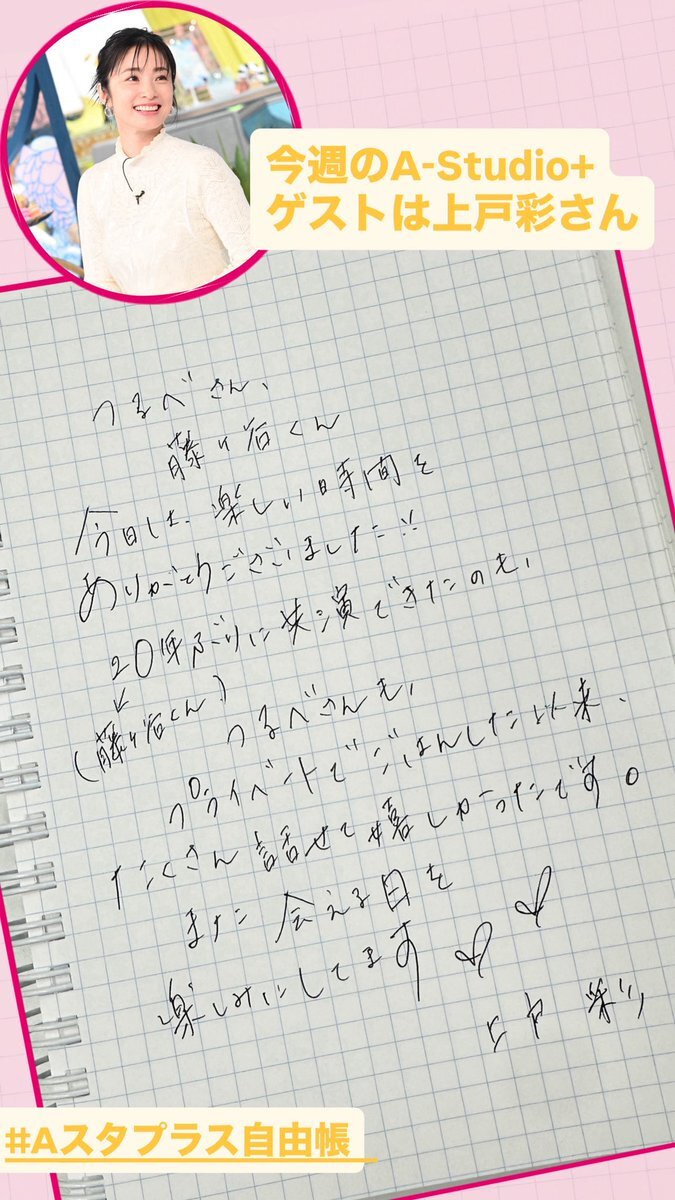 今週のA-Studio+
ゲストは上戸彩さん
つるべさん、
藤ヶ谷くん
今日は、楽しい時間を
ありがとうございました!!
20年ぶりに共演できたのも、
(藤ヶ谷くん)
つるべさんも、
プライベートでごはんした以来、
たくさん話せて嬉しかったです。
また会える日を
楽しみにしてます♡♡
上戸彩
#Aスタプラス自由帳